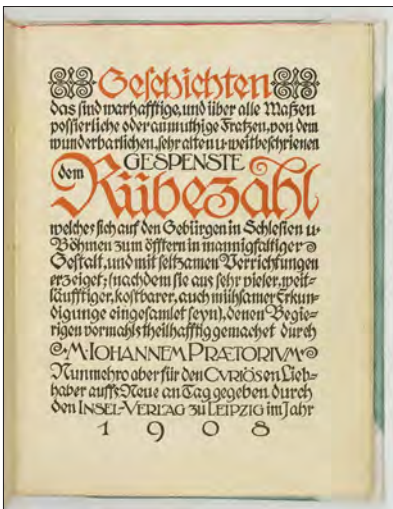 Geschichten
das sind warhafftige, und über alle Maßen
possierliche oder anmuthige Fratzen, von dem
wunderbarlichen, sehr alten u. weitbeschrienen
GESPENSTE
dem Rübezahl
welches sich auf den Gebürgen in Schlesien u.
Böhmen zum öfftern in mannigfaltiger
Gestalt, und mit seltzamen Verrichtungen
erzeiget; (nachdem sie aus sehr vieler, weit=
läufftiger, kostbarer, auch mühsamer Erkun=
digunge eingesamlet seyn), denen Begie=
rigen vormahls theilhafftig gemachet durch
M. IOHANNEM PRÆTORIVM
Nunmehro aber für den CVRIÖSen Lieb=
haber auffs Neue an Tag gegeben durch
den INSEL-VERLAG zu LEIPZIG im Jahr
1908